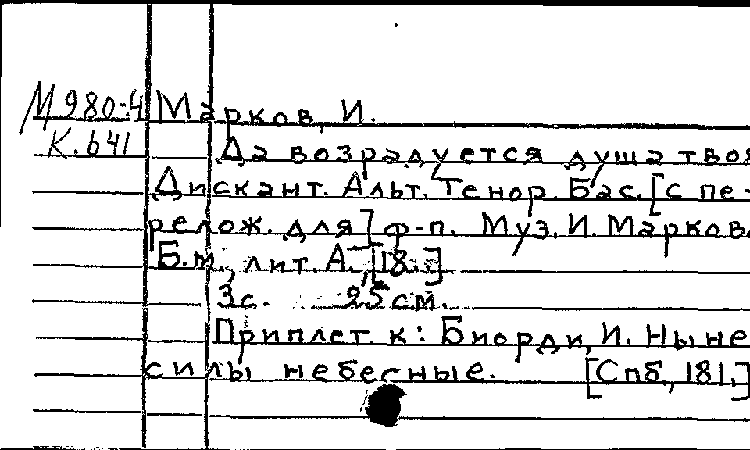 М 980-4 Марков, И.
К. 641 Да возрадуется душа твоя
Дискант. Альт. Тенор. Бас. [с пе-
релож. для] ф-п. Муз. И. Марков.
Б.м., лит. А., [18..]
3с. 25см.
Приплет. к: Биорди, И. Ныне
силы небесные. [Спб., 181.]